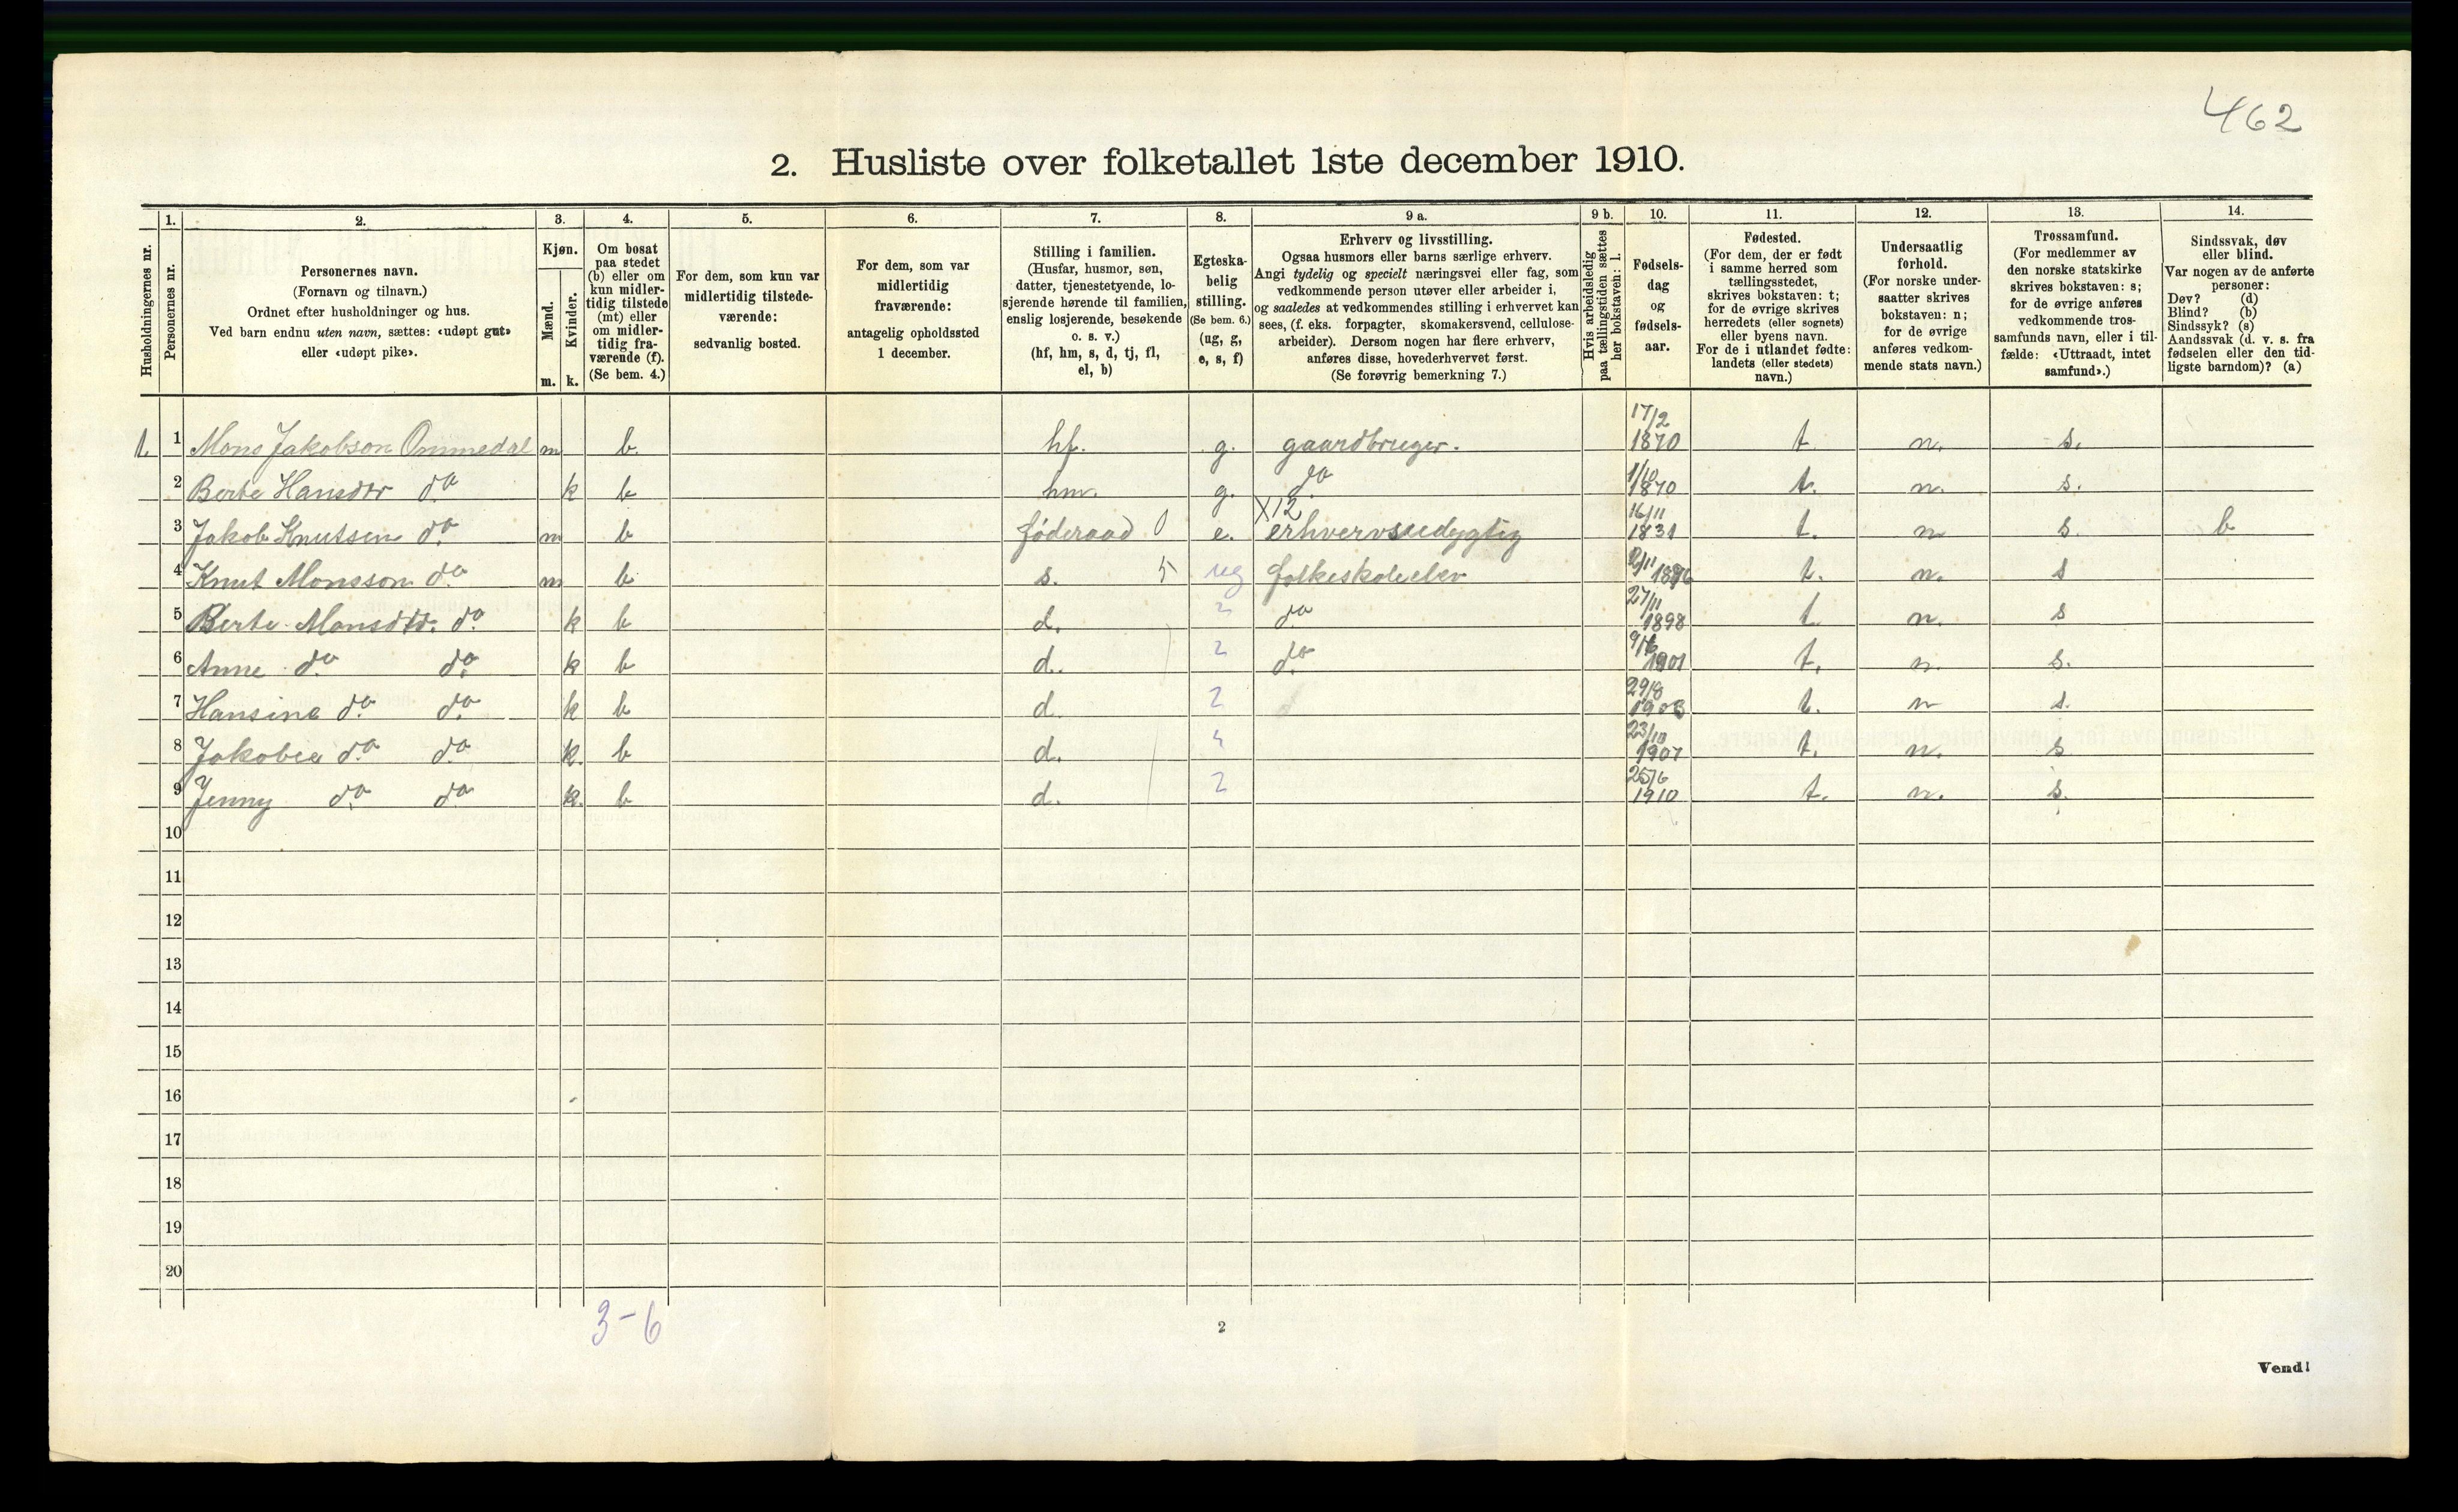 462
2. Husliste over folketallet 1ste december 1910.
Husholdningernes nr.
1.
Personernes nr.
2.
Personernes navn.
(Fornavn og tilnavn.)
Ordnet efter husholdninger og hus.
Ved barn endnu uten navn, sættes: «udøpt gut»
eller «udøpt pike».
3.
Kjøn.
Mænd.
m.
Kvinder.
k.
4.
Om bosat
paa stedet
(b) eller om
kun midler-
tidig tilstede
(mt) eller
om midler-
tidig fra-
værende (f).
(Se bem. 4.)
5.
For dem, som kun var
midlertidig tilstede-
værende:
sedvanlig bosted.
6.
For dem, som var
midlertidig
fraværende:
antagelig opholdssted
1 december.
7.
Stilling i familien.
(Husfar, husmor, søn,
datter, tjenestetyende, lo-
sjerende hørende til familien,
enslig losjerende, besøkende
o. s. v.)
(hf, hm, s, d, tj, fl,
el, b)
8.
Egteska-
belig
stilling.
(Se bem. 6.)
(ug, g,
e, s, f)
9 a.
Erhverv og livsstilling.
Ogsaa husmors eller barns særlige erhverv.
Angi tydelig og specielt næringsvei eller fag, som
vedkommende person utøver eller arbeider i,
og saaledes at vedkommendes stilling i erhvervet kan
sees, (f. eks. forpagter, skomakersvend, cellulose-
arbeider). Dersom nogen har flere erhverv,
anføres disse, hovederhvervet først.
(Se forøvrig bemerkning 7.)
9 b.
Hvis arbeidsledig
paa tællingstiden sættes
her bokstaven: l.
10.
Fødsels-
dag
og
fødsels-
aar.
11.
Fødested.
(For dem, der er født
i samme herred som
tællingsstedet,
skrives bokstaven: t;
for de øvrige skrives
herredets (eller sognets)
eller byens navn.
For de i utlandet fødte:
landets (eller stedets)
navn.)
12.
Undersaatlig
forhold.
(For norske under-
saatter skrives
bokstaven: n;
for de øvrige
anføres vedkom-
mende stats navn.)
13.
Trossamfund.
(For medlemmer av
den norske statskirke
skrives bokstaven: s;
for de øvrige anføres
vedkommende tros-
samfunds navn, eller i til-
fælde: «Uttraadt, intet
samfund».)
14.
Sindssvak, døv
eller blind.
Var nogen av de anførte
personer:
Døv? (d)
Blind? (b)
Sindssyk? (s)
Aandssvak (d. v. s. fra
fødselen eller den tid-
ligste barndom)? (a)
1 1 Mons Jakobson Ommedal m b. hf. g. gaardbruger. 17/2 1870 t. n. s.
2 Berte Hansdtr do k b hm. g. do 1/10 1870 t. n. s.
X12
3 Jakob Knutsen do m b føderaad 0 e. erhvervsudygtig 16/11 1831 t. n s. b
4 Knut Monsson do m b s. 5 ug folkeskoleelev t. n. s
5 Berte Monsdtr. do k b d. " do 27/11 1898 t. n. s
6 Anne do do k b d. " do 1901 t. n. s.
7 Hansine do do k b d. " 29/8 t. n s.
8 Jakobea do do k. b d. " 23/10 1907 t. n. s
9 Jenny do do k. b d. " 25/6 1910 t. n. s.
10
11
12
13
14
15
16
17
18
19
20
3-6
2
Vend!